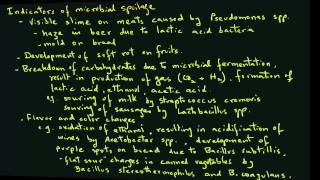 Indicators of microbial spoilage
- visible slime on meats caused by Pseudomonas spp.
- haze in beer due to lactic acid bacteria
- mold on bread
- Development of soft rot on fruits.
- Breakdown of carbohydrates due to microbial fermentation,
result in production of gas (CO2 + H2). formation of
lactic acid, ethanol, acetic acid.
eg. souring of milk by streptococcus cremoris
souring of sausages by Lactobacillus spp.
- Flavor and color changes:
eg. oxidation of ethanol, resulting in acidification of
wines by Acetobacter spp. - development of
purple spots on bread due to Bacillus subtillis.
- flat sour changes in canned vegetables by
Bacillus stereothermophilus and B. coagulans.